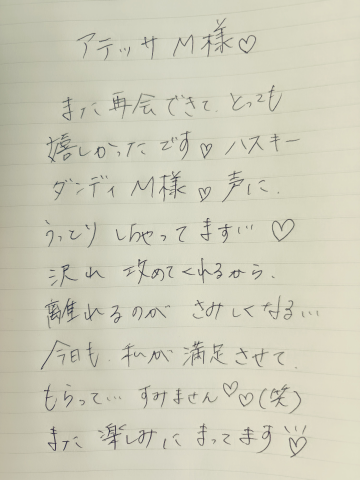 アテッサ M様♡
また再会できて、とっても
嬉しかったです♡ ハスキー
ダンディ M様♡ 声に、
うっとり しちゃってます… ♡
沢れ 攻めてくれるから、
離れるのが さみしくなる…
今日も、私が 満足させて、
もらって… すみません♡♡(笑)
また 楽しみに まってます♡